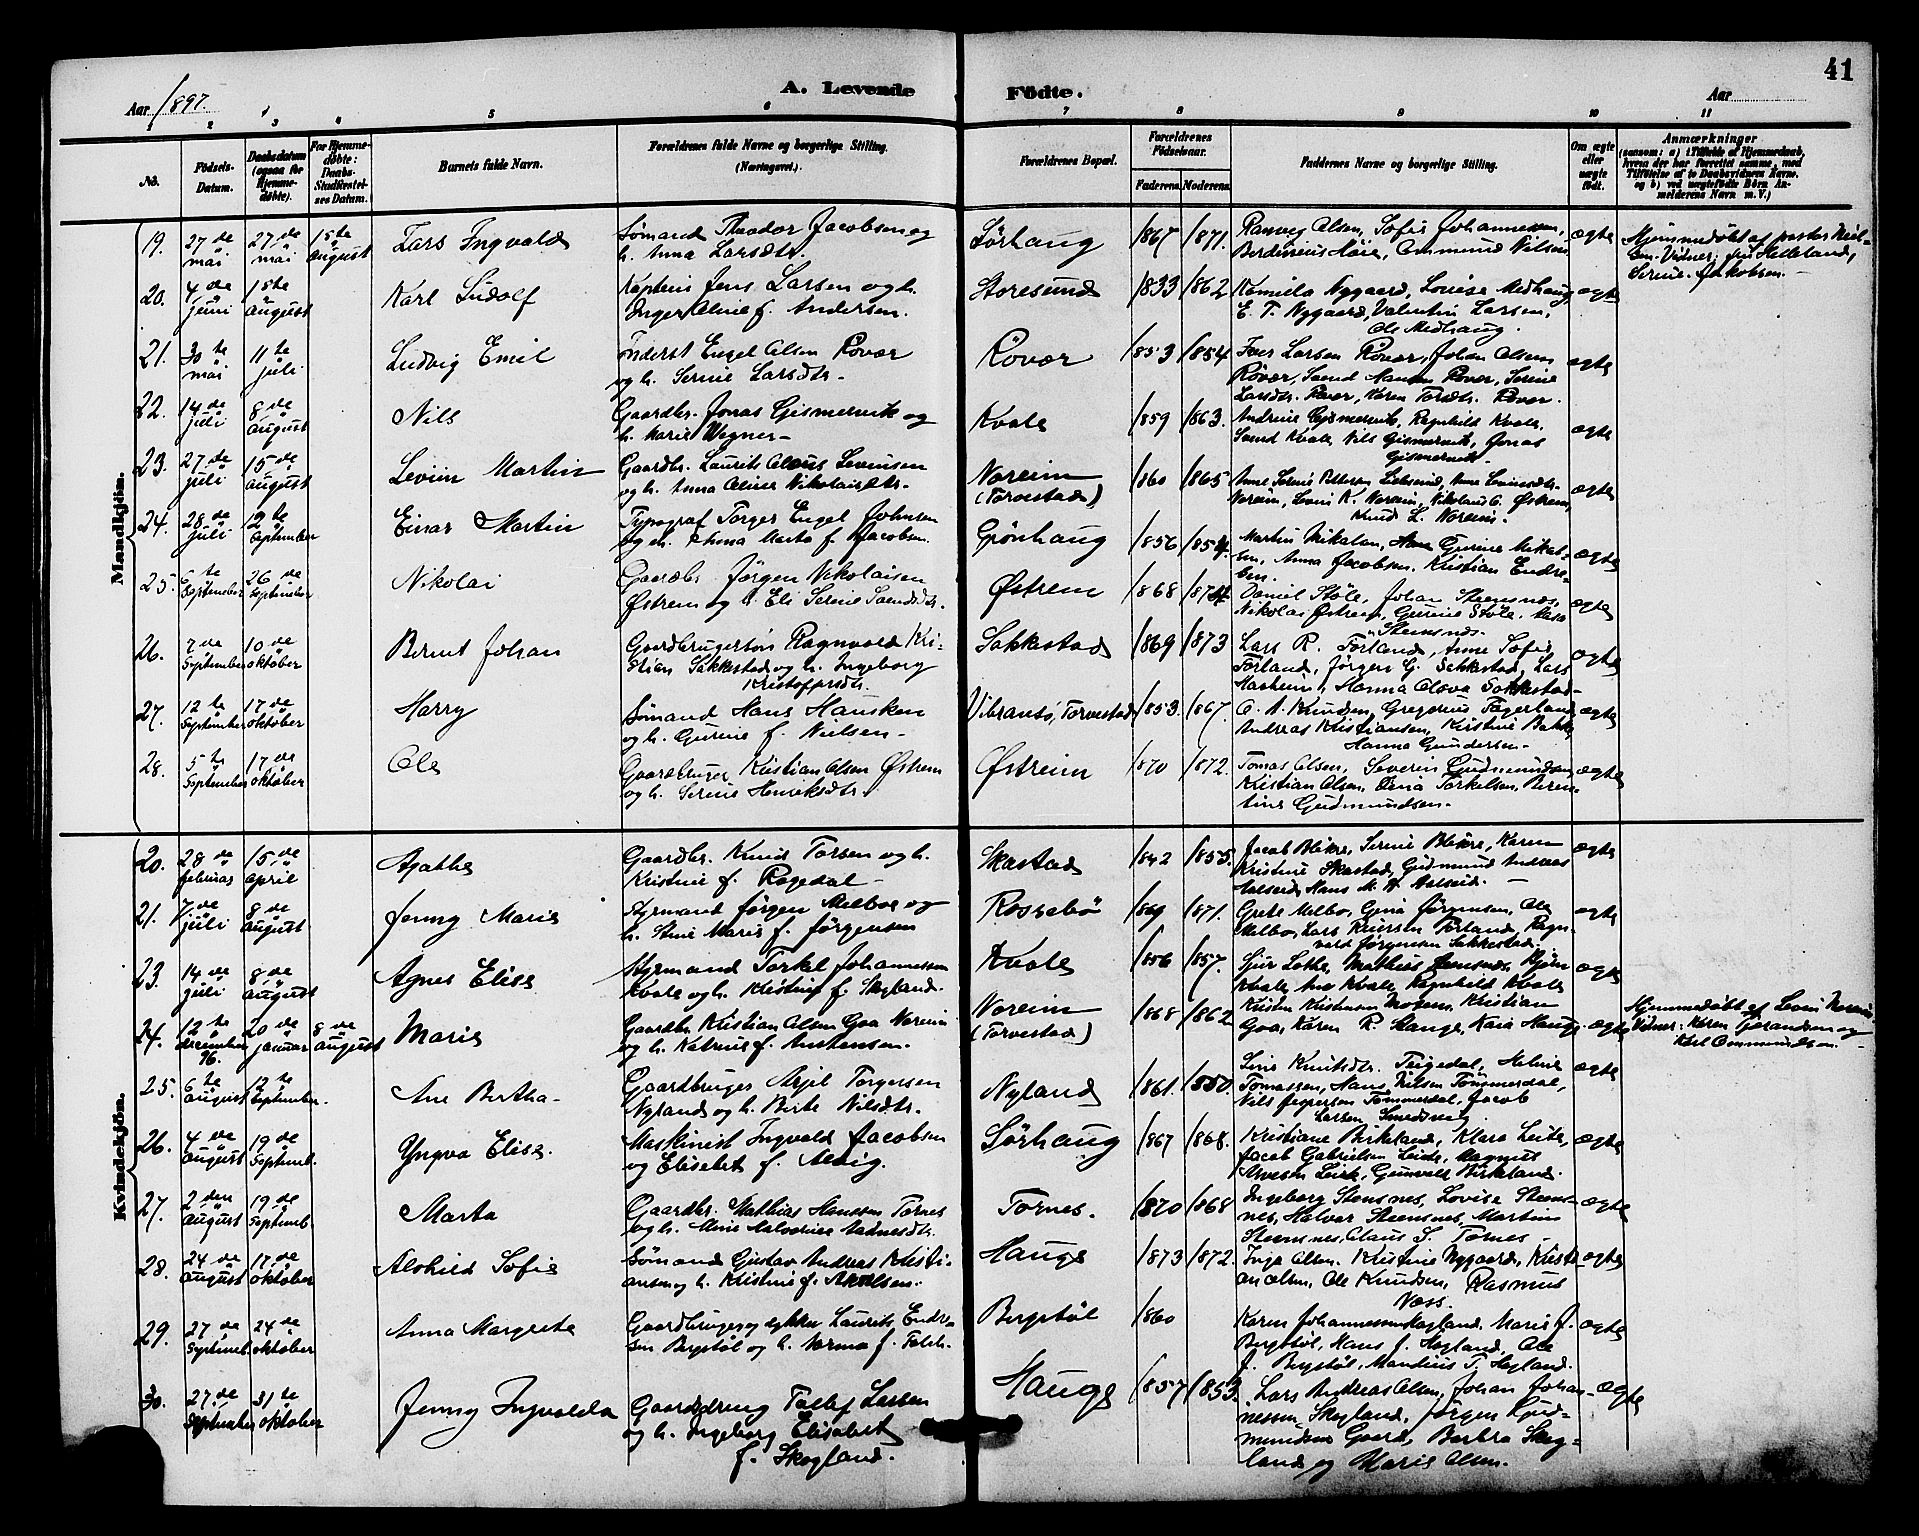 41
A. Levende Födte.
Aar 1897. Aar
1 2 3 4 5 6 7 8 9 10 11
No. Födsels-Datum. Daabsdatum (ogsaa for Hjemme-döbte). For Hjemme-döbte: Daabs-Stadfæstel-ses Datum. Barnets fulde Navn. Forældrenes fulde Navne og borgerlige Stilling. (Næringsvei.) Forældrenes Bopæl. Forældrenes Födselsaar. Faderens Moderens Faddernes Navne og borgerlige Stilling. Om ægte eller uægte födt. Anmærkninger
(saasom: a) i Tilfælde af Hjemmedaab, hvem der har forrettet samme, med Tilföielse af to Daabsvidners Navne. og b) ved uægtefödte Börn An-melderens Navn m. V.)
Mandkjön.
19. 27de mai 27de mai 1ste august Lars Ingvald Sømand Theodor Jacobsen og h. Anna Larsdtr. Sørhaug 1867 1871. Ranveg Olsen, Sofie Johannessen, Berdineius Høie, Ommund Nilsen ægte Hjemmedøbt af pastor Vidner: fru Helleland, Serine Jakobsen.
20. 4de juni 1ste august Karl Ludolf Kaptein Jens Larsen og h. Inger Oline f. Andersen. Storesund 1833 1862 Kamilla Nygaard, Lovise Medhaug E. T. Nygaard, Valentin Larsen, Ole Medhaug. ægte
21. 30te mai 11te juli Ludvig Emil Engel Olsen Røvær og h. Serine Larsdtr. Røvær 1853 1854 Iver Larsen Røvær, Johan Olsen Røvær, Hansen Røvær, Serine Larsdtr. Røvær, Karen Røvær. ægte
22. 14de juli 8de august Nils Gaardbr. Jonas Gismervik og h. Marie Wegner Kvale 1859 1863. Andrine Gismervik, Ragnhild Kvale, Kvale, Nils Gismervik, Jonas Gismervik. ægte
23. 27de juli 15de august Levin Martin Gaardbr. Laurits Olaus Levinsen og h. Anna Oline Nikolaisdtr. Noreim (Torvestad) 1860 1865 Anne Serine Noreim, Levin K. Noreim, Nikolaus O. Østrem, Knud L. Noreim. ægte
24. 28de juli 12te September Einar Martin Typograf Torger Engel Johnsen og h. Anna Marta f. Jacobsen. Grönhaug 1856 1854 Martin Mikalsen, Gurine Mikalsen, Anna Jacobsen, Kristian Endresen. ægte
25. 6te September 26de September Nikolai Gaardbr. Jörgen Nikolaisen Østrem og h. Eli Serine Østrem 1868 1874 Daniel Støle, Johan Steensnes, Nikolai Østrem, Gurine Støle, Steensnes. ægte
26. 7de September 10de oktober Bernt Johan Gaardbrugersøn Ragnvald Kristian Sakkestad og h. Ingeborg Kristofersdtr. Sakkestad 1869 1873 Lars R. Førland, Anne Sofie Førland, Jörgen G. Sakkestad, Lars Hanna Olava Sakkestad ægte
27. 12te September 17de oktober Harry Sømand Hans Hansken og h. Gurine f. Nielsen Vibransø, Torvestad 1853 1867. O. A. Knudsen, Gregorius Fagerland, Andreas Kristiansen, Kristine Bakke, Hanna Gundersen. ægte
28. 5te September 17de oktober Ole Gaardbruger Kristian Olsen Østrem og h. Serine Henriksdtr. Østreim 1870 1872. Tomas Olsen, Severin Gudmundsen, Kristian Olsen, Torkelsen, Berentine Gudmundsen. ægte
Kvindekjön.
20. 28de februar 15de april Agathe Gaardbr. Knud Torsen og h. Kristine f. Røgedal Skastad 1842 1855. Jacob Blikre, Serine Blikre, Karen Kristine Skastad, Gudmund Andreas Aalseid, Hans M. A. Aalseid. ægte
21. 7de juli 8de august Jenny Marie Styrmand Jörgen Melboe og h. Stine Marie f. Jörgensen Rossebö 1869 1871. Grete Melbo, Gina Jørgensen, Ole Melbo, Lars Førland, Ragnvald Jørgensen Sakkestad. ægte
23. 14de juli 8de august Agnes Elise Styrmand Torkel Johannessen Kvale og h. Kristine f. Skogland. Kvale 1856 1857. Sjur Lothe, Mathias Steensnes, Kvale, Kvale, Ragnhild Kvale ægte
24. 12te december 96. 20de januar 8de august Marie Gaardbr. Kristian Olsen Goa Noreim og h. Katrine f. Austensen. Noreim (Torvestad) 1868 1862 Kristen Kristensen Kristian Goa, Karen R. Stange, Kaia Hauge. ægte Hjemmedøbt af Levin Noreim Vidner: Karen og Karl Ommundsen
25. 6te august 12te September Ane Bertha Gaardbruger Torgersen Nyland og h. Birte Nilsdtr. Nyland 1861. Sine Knutsdtr. Teigedal, Helene Tomassen, Hans Nilsen Tømmerdal, Nils Jespersen Tømmerdal, Jacob Larsen, ægte
26. 4de august 19de Septemb. Yngva Elise. Maskinist Ingvald Jacobsen og Elisebet f. Sörhaug 1867 1868. Kristiane Birkeland, Klara Leite, Jacob Gabrielsen Magnus Gunvald Birkland. ægte
27. 2den august 19de Septemb. Marta Gaardbr. Mathias Hanssen Tornes og h. Tornes. 1870 1868 Ingeborg Stensnes, Lovise Steensnes, Halvar Steensnes, Martin Steensnes, Claus S. Tornes. ægte
28. 24de august 17de oktober Alvhild Sofie Sømand Gustav Andreas Kristiansen og h. Kristine f. Hauge 1873 1872. Inga Olsen. Kristine Nygaard, Kristian Olsen, Ole Knudsen, Rasmus Næss. ægte
29. 27de Septemb. 24de oktober Anna Margrete Gaardbruger og Laurits Endresen Bergstøl og h. Norma f. Bergstøl 1860 Karen Johannessen Skogland. Marie J. Bergstøl, Hans J. Hogland, Ole J. Bergstøl, T. Hogland. ægte
30. 27.de September 31te oktober Jenny Ingvalda Larsen og h. Ingeborg Elisabet f. Skogland. Hauge 1857 1853. Lars Andreas Olsen, Johan Johannessen Skogland, Jørgen Gudmundsen Gaard, Barbra Skogland og Marie Olsen. ægte